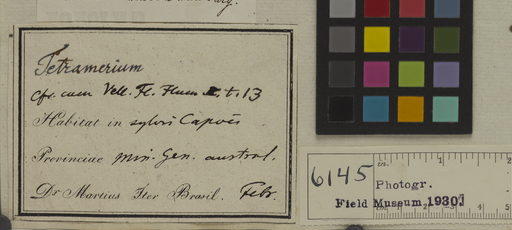 Tetramerium
Cfr. cum Vell. Fl. Flum I. t. 13
Habitat in sylvis Capoës
Provinciae min. Gen. austral.
Dr Martius Iter Brasil. Febr.
6145
in. 1 2
Photogr.
Field Museum 1930.
1 2 3 4 5